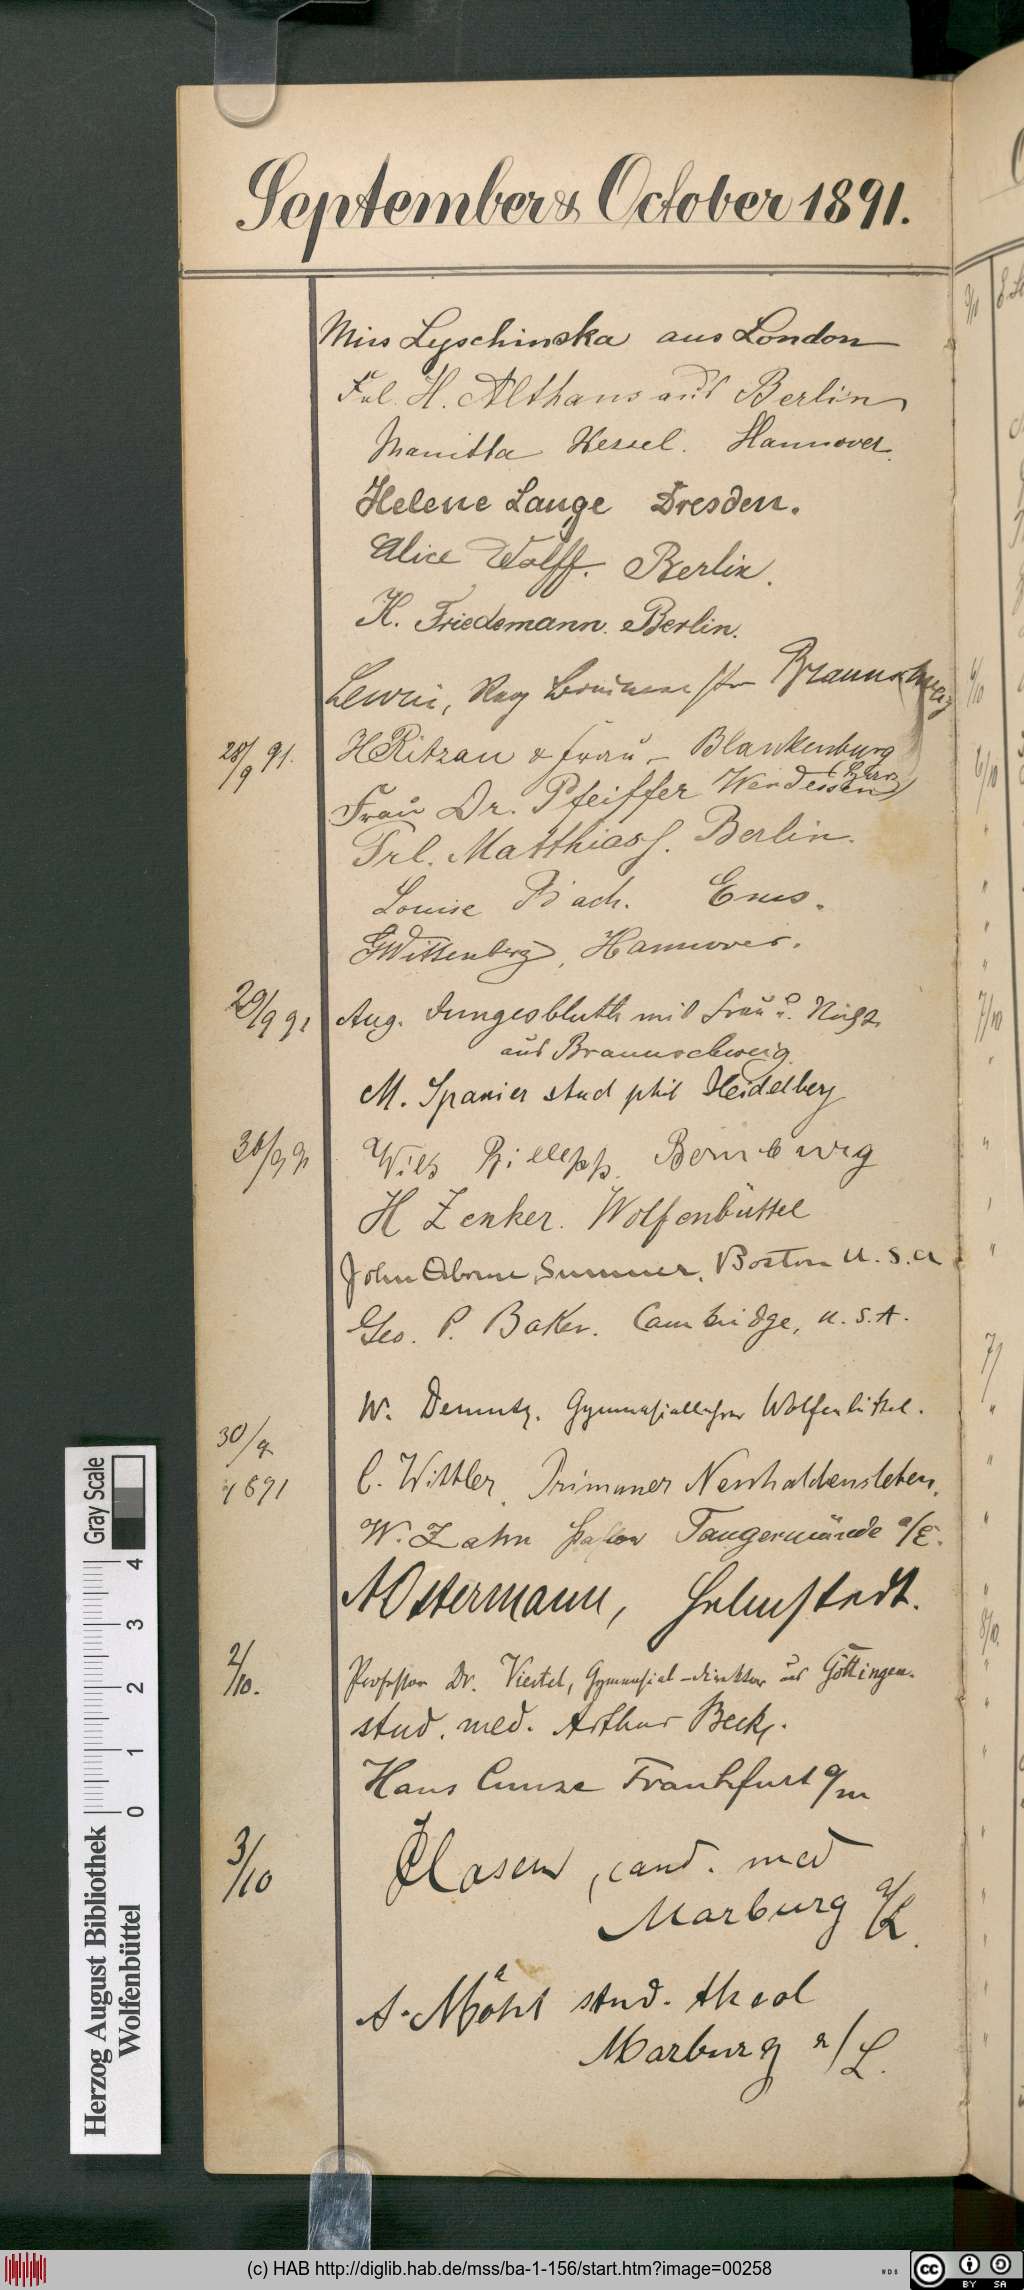 September & October 1891.
Miss Lyschinska aus London
Frl. H. Althaus aus Berlin
Manitta Hessel. Hannover.
Helene Lange Dresden.
Alice Wolff. Berlin.
H. Friedemann. Berlin.
Lewin, Braunschweig
28/9 91. H Ritzau & Frau - Blankenburg
(Harz)
Frau Dr. Pfeiffer Wendessen
Frl. Matthiass. Berlin.
Louise Bach. Ems.
G Wittenberg, Hannover.
29/9 91 Aug. Jungesbluth mit Frau u.
aus Braunschweig.
M. Spanier stud phil Heidelberg
30/9 91 Bernburg
H Zenker. Wolfenbüttel
John Osborne Sumner, Boston U.S.A
Geo. P. Baker. Cambridge, U.S.A.
W. Demuth. Gymnasiallehrer Wolfenbüttel.
30/9
1891 C. Wittler, Primaner Neuhaldensleben.
W. Zahn Pastor Tangermünde a/E.
A Ostermann, Helmstedt.
2/10. Professor Dr. Viertel, Gymnasial-direktor aus Göttingen.
stud. med. Arthur Beck.
Hans Cunze Frankfurt a/m
3/10 Clasen, cand. med
Marburg a/L.
A. Möhl stud. theol
Marburg a/L.
Gray Scale
0 1 2 3 4
Herzog August Bibliothek
Wolfenbüttel
(c) HAB http://diglib.hab.de/mss/ba-1-156/start.htm?image=00258
WDB
cc BY SA